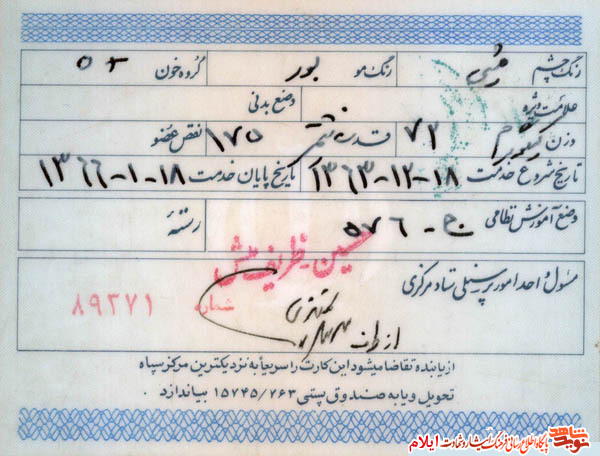 رنگ چشم میشی رنگ مو بور گروه خون
علامت ویژه وضع بدنی
وزن ۷۳ کیلوگرم قد ۱۷۵ نقص عضو
تاریخ شروع خدمت ۱۸-۱۲-۱۳۶۳ تاریخ پایان خدمت ۱۸-۱-۱۳۶۶
وضع آموزش نظامی ج - ۵۷۶ رسته
حسین ظریف منش
مسئول واحد امور پرسنلی ستاد مرکزی
شماره ۸۹۲۷۱
از طرف
از یابنده تقاضا میشود این کارت را سریعاً به نزدیکترین مرکز سپاه
تحویل و یا به صندوق پستی ۱۵۷۴۵/۷۶۳ بیاندازد .
نوید شاهد پایگاه اطلاع رسانی فرهنگ ایثار و شهادت ایلام